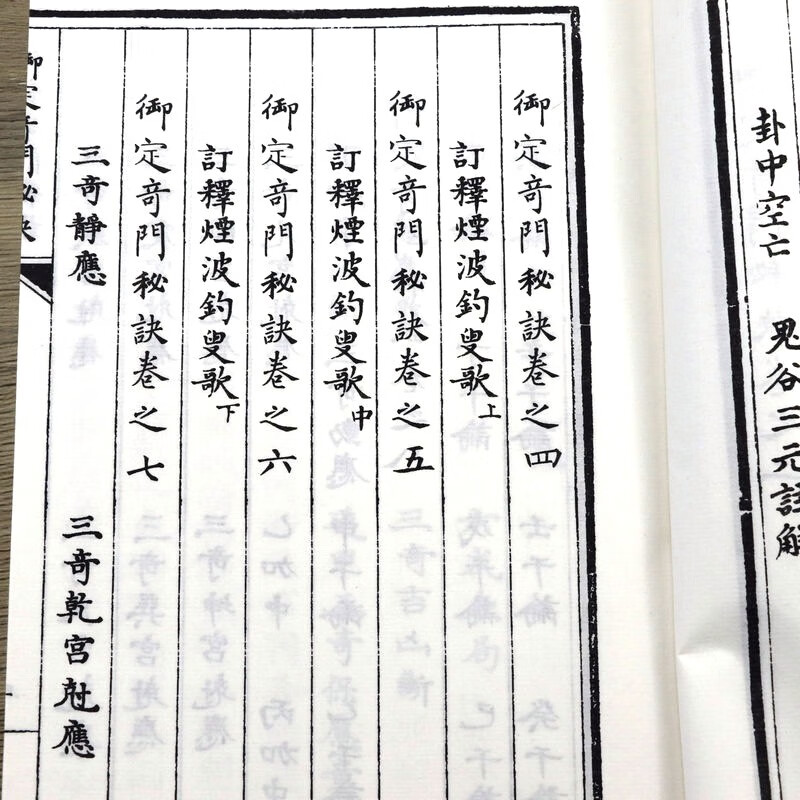 卦中空亡　鬼谷三元註解
御定竒門秘訣卷之四
訂釋煙波釣叟歌上
御定竒門秘訣卷之五
訂釋煙波釣叟歌中
御定竒門秘訣卷之六
訂釋煙波釣叟歌下
御定竒門秘訣卷之七
三竒靜應　三竒乾宮尅應
御定竒門秘訣